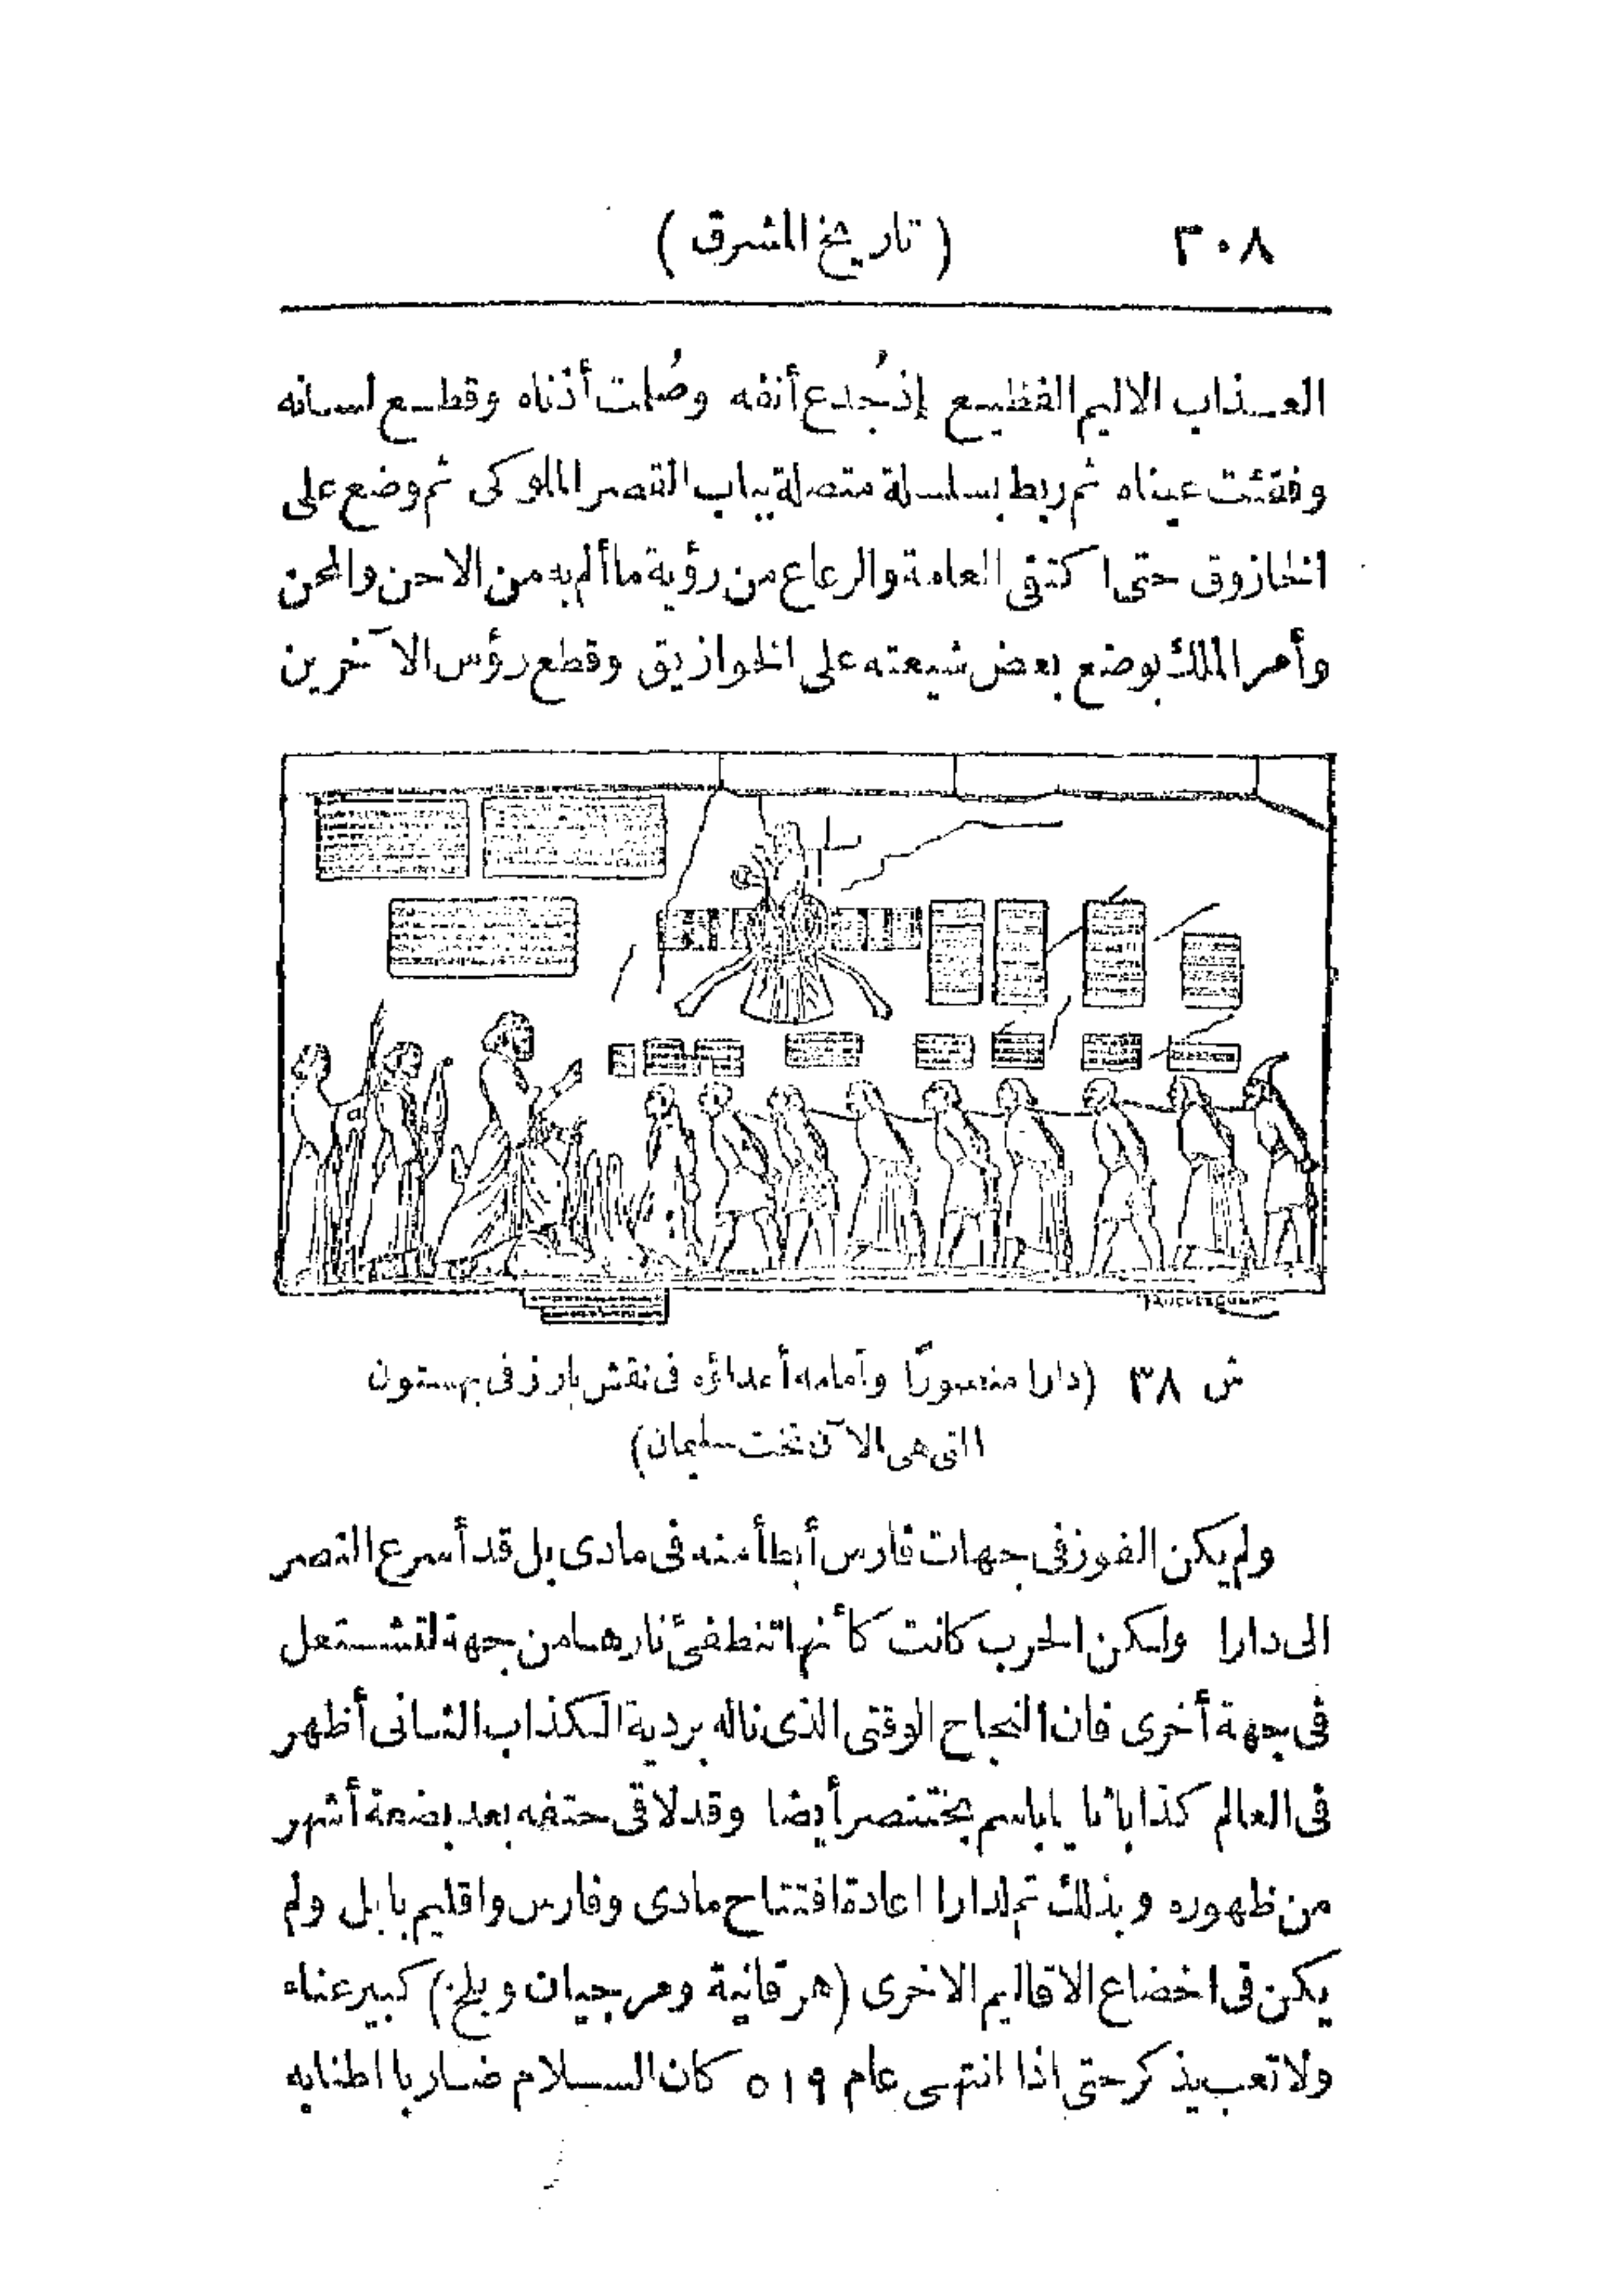 ٣٠٨ (تاريخ المشرق)
العذاب الاليم الفظيع إذ جُدع أنفه وصُلمت أذناه وقطع لسانه
وفقئت عيناه ثم ربط بسلسلة متصلة بباب القصر الملوكى ثم وضع على
الخازوق حتى اكتفى العامة والرعاع من رؤية ما ألم به من الاحن والمحن
وأمر الملك بوضع بعض شيعته على الخوازيق وقطع رؤس الآخرين
ش ٣٨ (دارا منصورًا وأمامه أعدائه فى نقش بارز فى بهستون
التى هى الآن تخت سليمان)
ولم يكن الفوز فى جهات فارس أبطأ منه فى مادى بل قد أسرع النصر
الى دارا ولكن الحرب كانت كأنها تنطفئ نارها من جهة لتشتعل
فى جهة أخرى فان النجاح الوقتى الذى ناله بردية الكذاب الثانى أظهر
فى العالم كذابا ثانيا باسم بختنصر أيضا وقد لاقى حتفه بعد بضعة أشهر
من ظهوره وبذلك تم لدارا اعادة افتتاح مادى وفارس واقليم بابل ولم
يكن فى اخضاع الاقاليم الاخرى (هرقانية ومرجيان وبلخ) كبير عناء
ولا تعب يذكر حتى اذا انتهى عام ٥١٩ كان السلام ضاربا اطنابه